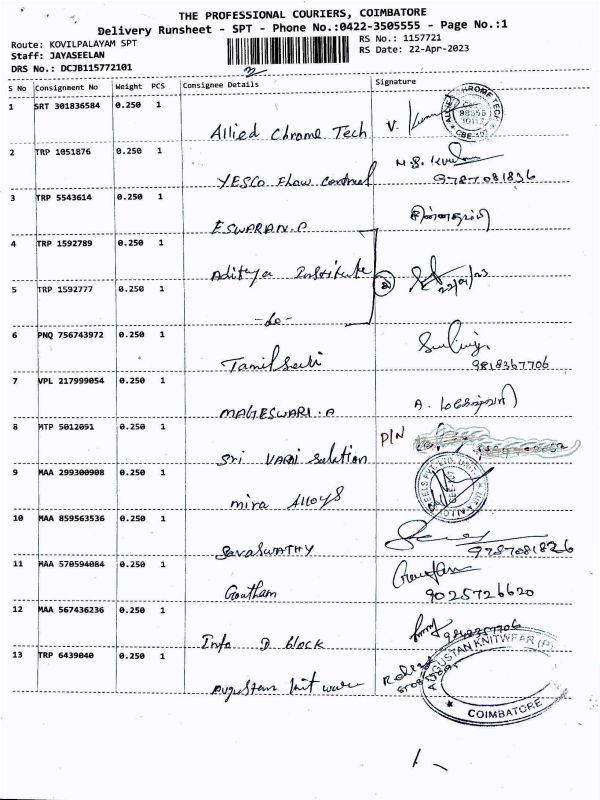 THE PROFESSIONAL COURIERS, COIMBATORE
Delivery Runsheet - SPT - Phone No.:0422-3505555 - Page No.:1
Route: KOVILPALAYAM SPT
RS No.: 1157721
Staff: JAYASEELAN
RS Date: 22-Apr-2023
DRS No.: DCJB115772101
S No Consignment No Weight PCS Consignee Details Signature
1 SRT 301836584 0.250 1 Allied Chrome Tech V.
2 TRP 1051876 0.250 1 YESCO Flow Control
9787081836
3 TRP 5543614 0.250 1 ESWARAN.P
4 TRP 1592789 0.250 1 Aditya Institute
22/04/23
5 TRP 1592777 0.250 1 -do-
6 PNQ 756743972 0.250 1 Tamilselvi
9818367706
7 VPL 217999054 0.250 1 MAGESWARI.A
8 MTP 5012091 0.250 1 Sri VARI Solution P/N
9 MAA 299300908 0.250 1 mira Alloys
10 MAA 859563536 0.250 1 SARASWATHY
9787081826
11 MAA 570594084 0.250 1 Goutham
9025726620
12 MAA 567436236 0.250 1 Info D block
13 TRP 6439040 0.250 1 Augustan knit ware
AUGUSTAN KNITWEAR (P)
COIMBATORE